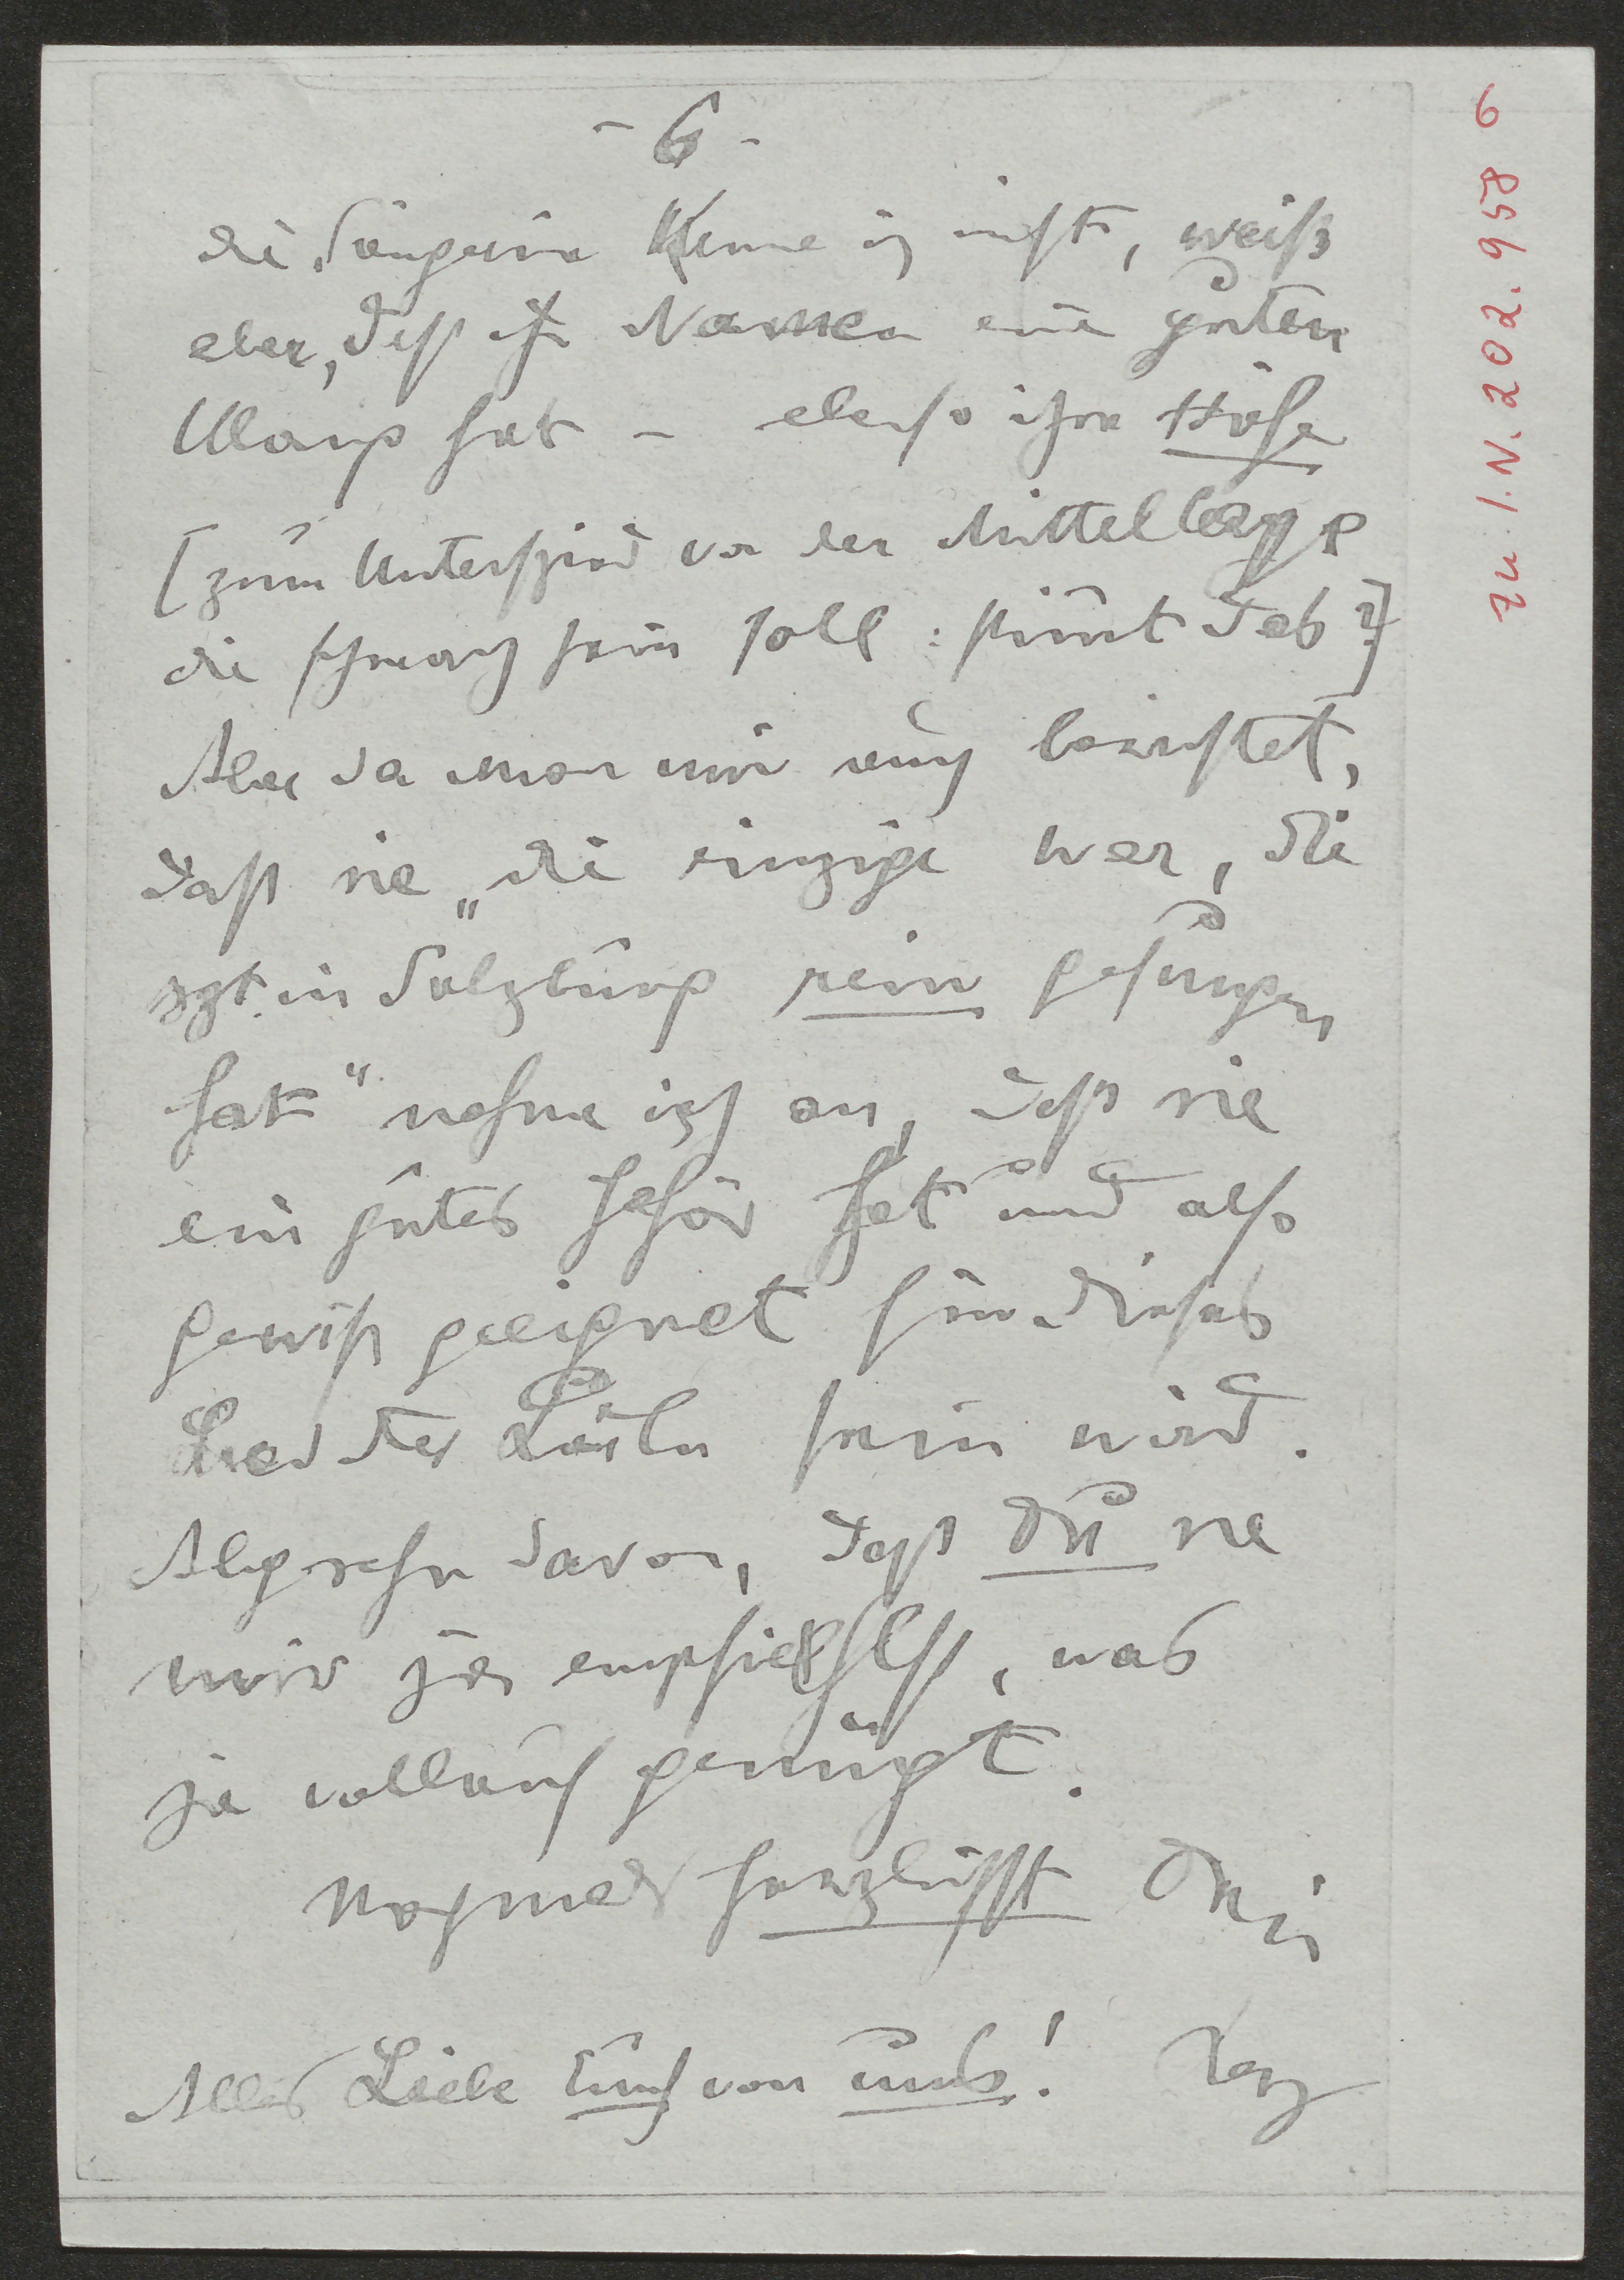 - 6 -
die Sängerin kenne ich nicht, weiß
aber, daß ihr Namen einen guten
Klang hat – ebenso ihre Höhe
[zum Unterschied von der Mittellage
die schwach sein soll: stimmt das?]
Aber da man mir auch berichtet,
daß sie „die einzige war, die
in Salzburg rein gesungen
hat“ nehme ich an, daß sie
ein gutes Gehör hat und also
gewiß geeignet für dieses
Lied der Lulu sein wird.
Abgesehn davon, daß Du sie
mir ja empfiehlst, was
ja vollauf genügt.
Nochmals herzlichst Dein
Alles Liebe Euch von uns!
zu I.N. 202.958 6